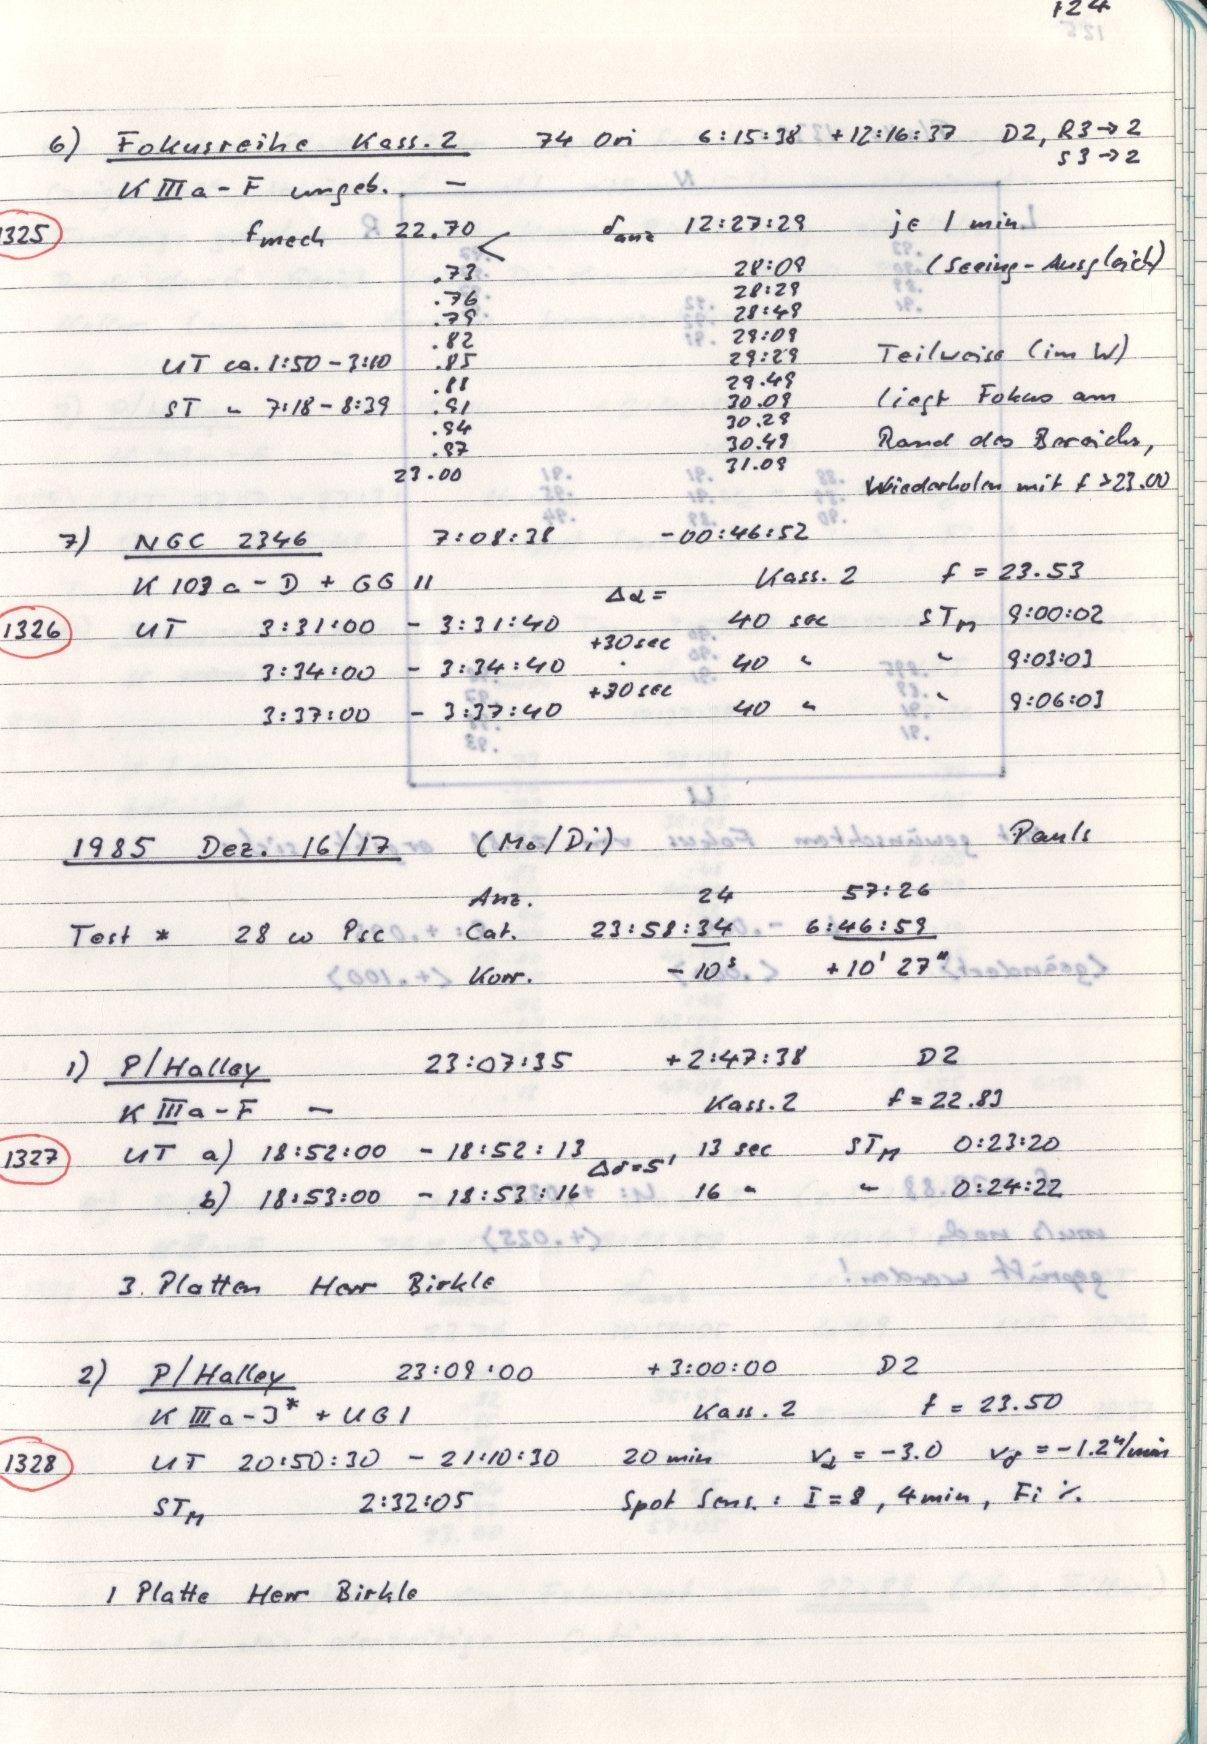 124
6) Fokusreihe Kass. 2 74 Ori 6:15:38 +12:16:37 D2, R3→2
S3→2
K IIIa-F ungeb. —
1325 fmech 22.70 < δanz 12:27:29 je 1 min.
.73 28:09 (Seeing-Ausgleich)
.76 28:29
.79 28:49
.82 29:09
UT ca. 1:50 - 3:10 .85 29:29 Teilweise (im W)
.88 29.49
ST " 7:18 - 8:39 .91 30.09 liegt Fokus am
.94 30.29
.97 30.49 Rand des Bereichs,
23.00 31.09 Wiederholen mit f > 23.00
7) NGC 2346 7:08:38 -00:46:52
K 103a-D + GG 11 Kass. 2 f = 23.53
Δα =
1326 UT 3:31:00 - 3:31:40 40 sec STM 9:00:02
+30sec
3:34:00 - 3:34:40 40 " " 9:03:03
+30sec
3:37:00 - 3:37:40 40 " " 9:06:03
1985 Dez. 16/17 (Mo/Di) Pauls
Anz. 24 57:26
Test * 28 ω Psc Cat. 23:58:34 6:46:59
Korr. -10s +10' 27"
1) P/Halley 23:07:35 +2:47:38 D2
K IIIa-F — Kass. 2 f = 22.83
1327 UT a) 18:52:00 - 18:52:13 13 sec STM 0:23:20
Δδ=5'
b) 18:53:00 - 18:53:16 16 " " 0:24:22
3 Platten Herr Birkle
2) P/Halley 23:09:00 +3:00:00 D2
K IIIa-J* + UG1 Kass. 2 f = 23.50
1328 UT 20:50:30 - 21:10:30 20 min vα = -3.0 vδ = -1.2"/min
STM 2:32:05 Spot Sens.: I=8, 4min, Fi ٪.
1 Platte Herr Birkle